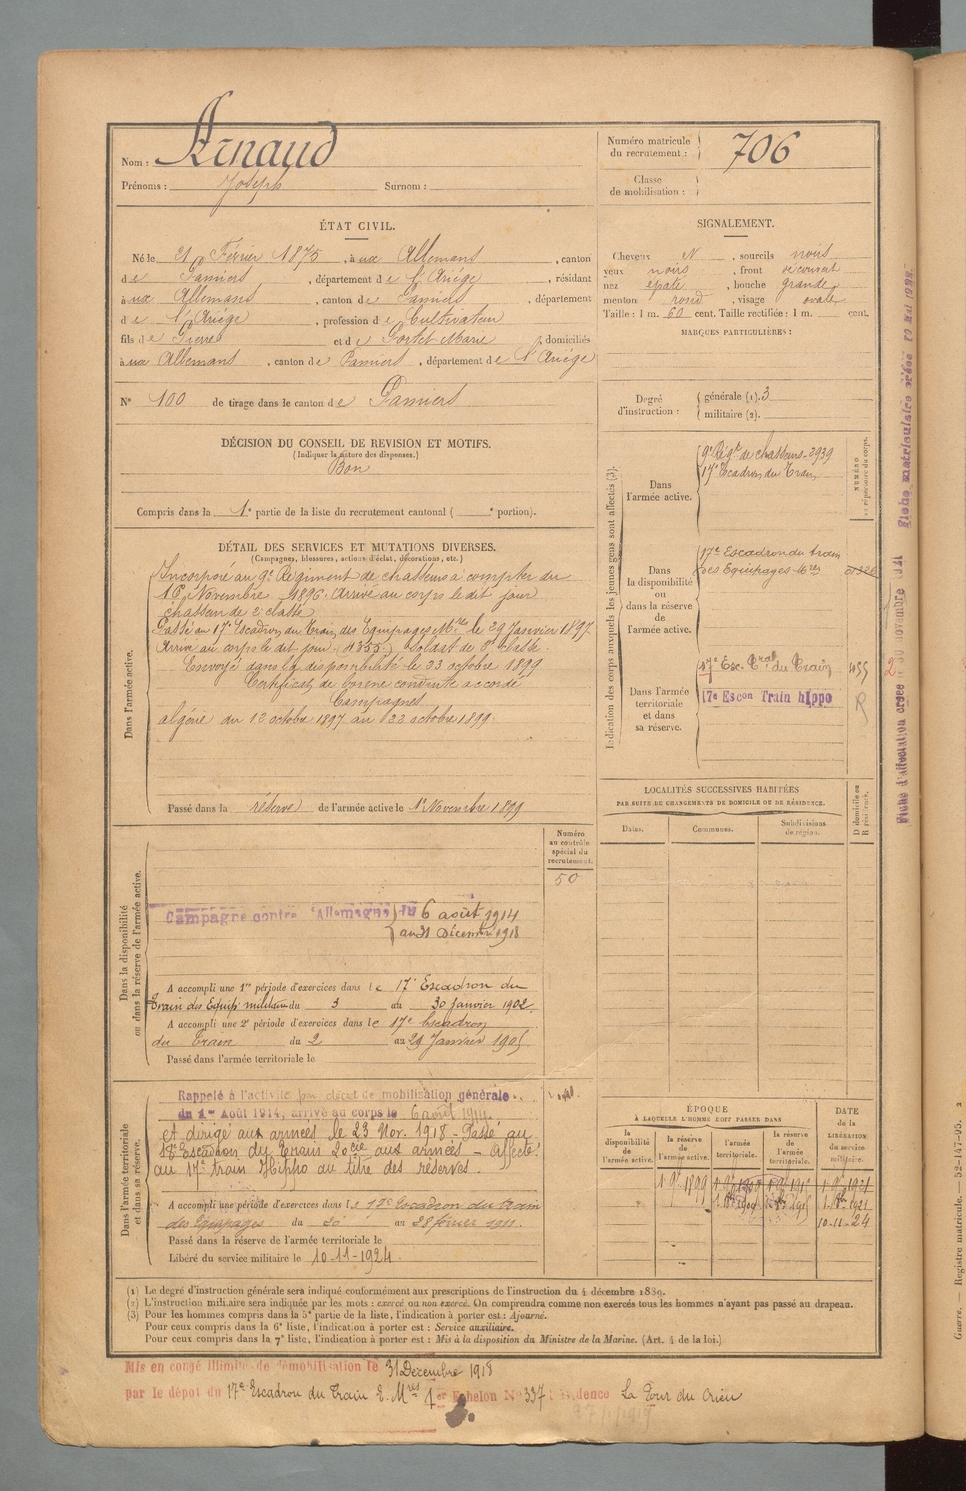 Nom : Arnaud
Prénoms : Joseph Surnom :
Numéro matricule du recrutement : 706
Classe de mobilisation :
ÉTAT CIVIL.
Né le 21 Février 1875, à ux Allemans, canton
de Pamiers, département de l'Ariége, résidant
à ux Allemans, canton de Pamiers, département
de l'Ariége, profession de Cultivateur
fils de Pierre et de Portet Marie, domiciliés
à ux Allemans, canton de Pamiers, département de l'Ariége
N° 100 de tirage dans le canton de Pamiers
SIGNALEMENT.
Cheveux N, sourcils noirs
yeux noirs, front découvert
nez épaté, bouche grande
menton rond, visage ovale
Taille : 1 m. 60 cent. Taille rectifiée : 1 m. cent.
MARQUES PARTICULIÈRES :
Degré d'instruction : générale (1). 3
militaire (2).
DÉCISION DU CONSEIL DE REVISION ET MOTIFS.
(Indiquer la nature des dispenses.)
Bon
Compris dans la 1e partie de la liste du recrutement cantonal ( e portion).
DÉTAIL DES SERVICES ET MUTATIONS DIVERSES.
(Campagnes, blessures, actions d'éclat, décorations, etc.)
Dans l'armée active.
Incorporé au 9e Régiment de chasseurs à compter du
16 Novembre 1896. Arrivé au corps le dit jour
chasseur de 2e classe
Passé au 17e Escadron du Train des Equipages Mres le 29 Janvier 1897
Arrivé au corps le dit jour. Soldat de 2e classe.
Envoyé dans la disponibilité le 23 octobre 1899
Certificat de bonne conduite accordé
Campagnes
algérie du 12 octobre 1897 au 22 octobre 1899.
Passé dans la réserve de l'armée active le 1er Novembre 1899
Indication des corps auxquels les jeunes gens sont affectés (3).
NUMÉRO au répertoire du corps.
Dans l'armée active.
9e Régt de chasseurs - 2939
17e Escadron du Train
Dans la disponibilité ou dans la réserve de l'armée active.
17e Escadron du train
des Equipages Mres
Dans l'armée territoriale et dans sa réserve.
17e Esc. Cral du Train
17e Escon Train hippo
LOCALITÉS SUCCESSIVES HABITÉES
PAR SUITE DE CHANGEMENTS DE DOMICILE OU DE RÉSIDENCE.
Dates. Communes. Subdivisions de région. D domicile ou R résidence.
Dans la disponibilité ou dans la réserve de l'armée active.
Numéro au contrôle spécial du recrutement.
50
Campagne contre l'Allemagne du 6 août 1914
au 31 Décembre 1918
A accompli une 1re période d'exercices dans le 17e Escadron du
train des Equip. militaires du 3 au 30 janvier 1902.
A accompli une 2e période d'exercices dans le 17e Escadron
du Train du 2 au 29 Janvier 1905
Passé dans l'armée territoriale le
Dans l'armée territoriale et dans sa réserve.
Rappelé à l'activité par décret de mobilisation générale
du 1er Août 1914, arrivé au corps le 6 août 1914.
et dirigé aux armées le 23 Nov. 1918 - Passé au
Escadron du Train 20e Cie aux armées - Affecté
au 17e train Hippo au titre des réserves.
A accompli une période d'exercices dans le 17e Escadron du train
des Equipages du 20 au 28 février 1911.
Passé dans la réserve de l'armée territoriale le
Libéré du service militaire le 10-11-1924.
ÉPOQUE
À LAQUELLE L'HOMME DOIT PASSER DANS
la disponibilité de l'armée active. la réserve de l'armée active. l'armée territoriale. la réserve de l'armée territoriale.
DATE de la LIBÉRATION du service militaire.
10-11-24
(1) Le degré d'instruction générale sera indiqué conformément aux prescriptions de l'instruction du 4 décembre 1889.
(2) L'instruction militaire sera indiquée par les mots : exercé ou non exercé. On comprendra comme non exercés tous les hommes n'ayant pas passé au drapeau.
(3) Pour les hommes compris dans la 5e partie de la liste, l'indication à porter est : Ajourné.
Pour ceux compris dans la 6e liste, l'indication à porter est : Service auxiliaire.
Pour ceux compris dans la 7e liste, l'indication à porter est : Mis à la disposition du Ministre de la Marine. (Art. 4 de la loi.)
Mis en congé illimité de démobilisation le 31 Décembre 1918
par le dépôt du 17e Escadron du Train E. Mres 1er Echelon N° 337 Résidence La Tour du Crieu
Guerre. — Registre matricule. — 52-147-95.